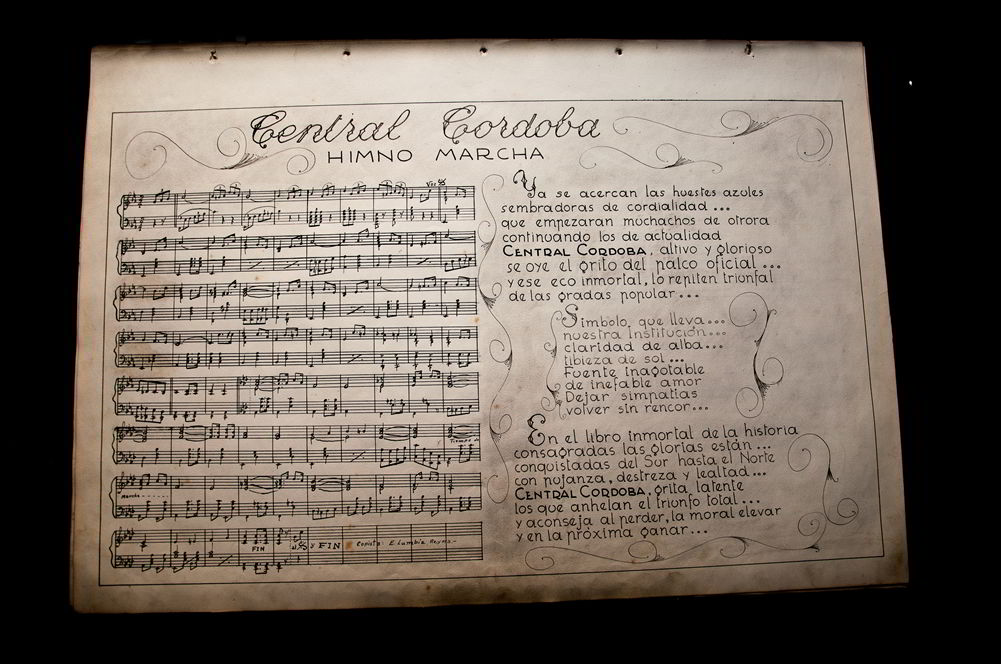 Central Cordoba
HIMNO MARCHA
Ya se acercan las huestes azules
sembradoras de cordialidad ...
que empezaran muchachos de otrora
continuando los de actualidad
CENTRAL CORDOBA, altivo y glorioso
se oye el grito del palco oficial ...
y ese eco inmortal, lo repiten triunfal
de las gradas popular ...
Simbolo que lleva ...
nuestra Institución ...
claridad de alba ...
tibieza de sol ...
Fuente inagotable
de inefable amor
Dejar simpatías
volver sin rencor ...
En el libro inmortal de la historia
consagradas las glorias están ...
conquistadas del Sur hasta el Norte
con pujanza, destreza y lealtad ...
CENTRAL CORDOBA, grita latente
los que anhelan el triunfo total ...
y aconseja al perder, la moral elevar
y en la próxima ganar ...
Marcha
FIN
y FIN
Copista: E. Lumbia Reyna.-